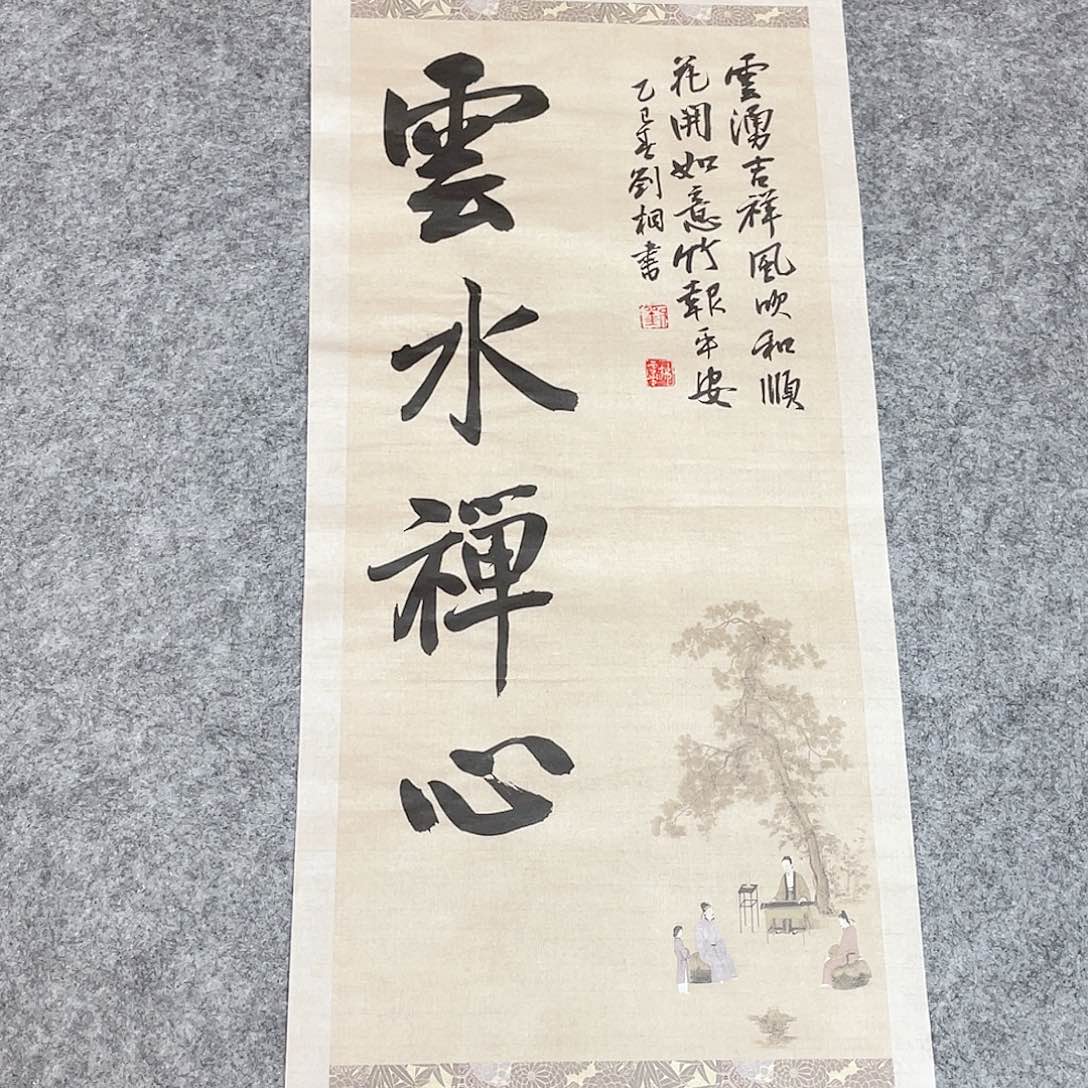 雲湧吉祥風吹和順
花開如意竹報平安
乙巳春劉桐書
雲水禪心